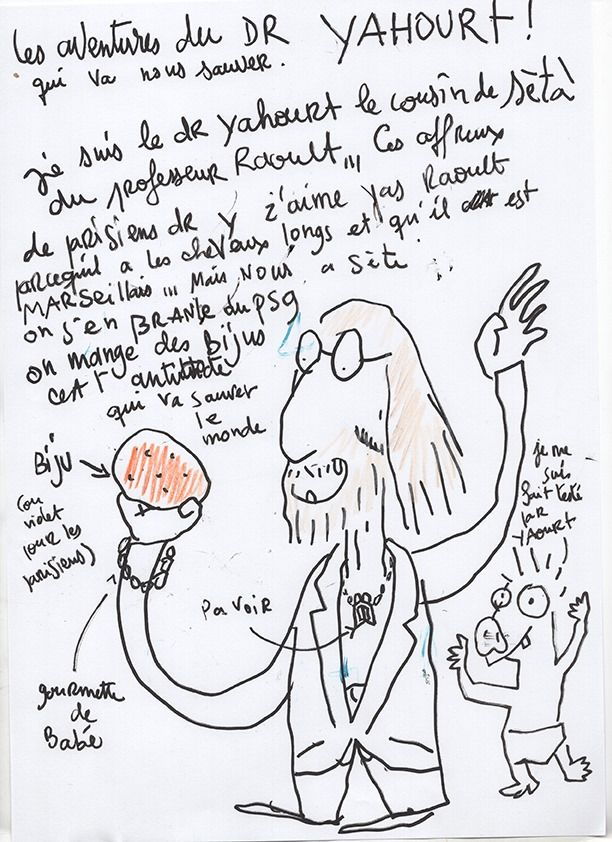 Les aventures du DR YAHOURT!
qui va nous sauver.
je suis le dr Yahourt le cousin de Sètà
du professeur Raoult,,, Ces affreux
de parisiens dr Y z'aime pas Raoult
parcequil a les cheVaux longs et qu'il est
MARseillais ,,, Mais NOUS a Sète
on s'en BRANle du PSG
on mange des Bijus
cest l'
qui va sauver
le
monde
BiJU
(ou
violet
pour les
parisiens)
gourmette
de
Babée
PaVOIR
je me
suis
fait testé
par
YAOURT